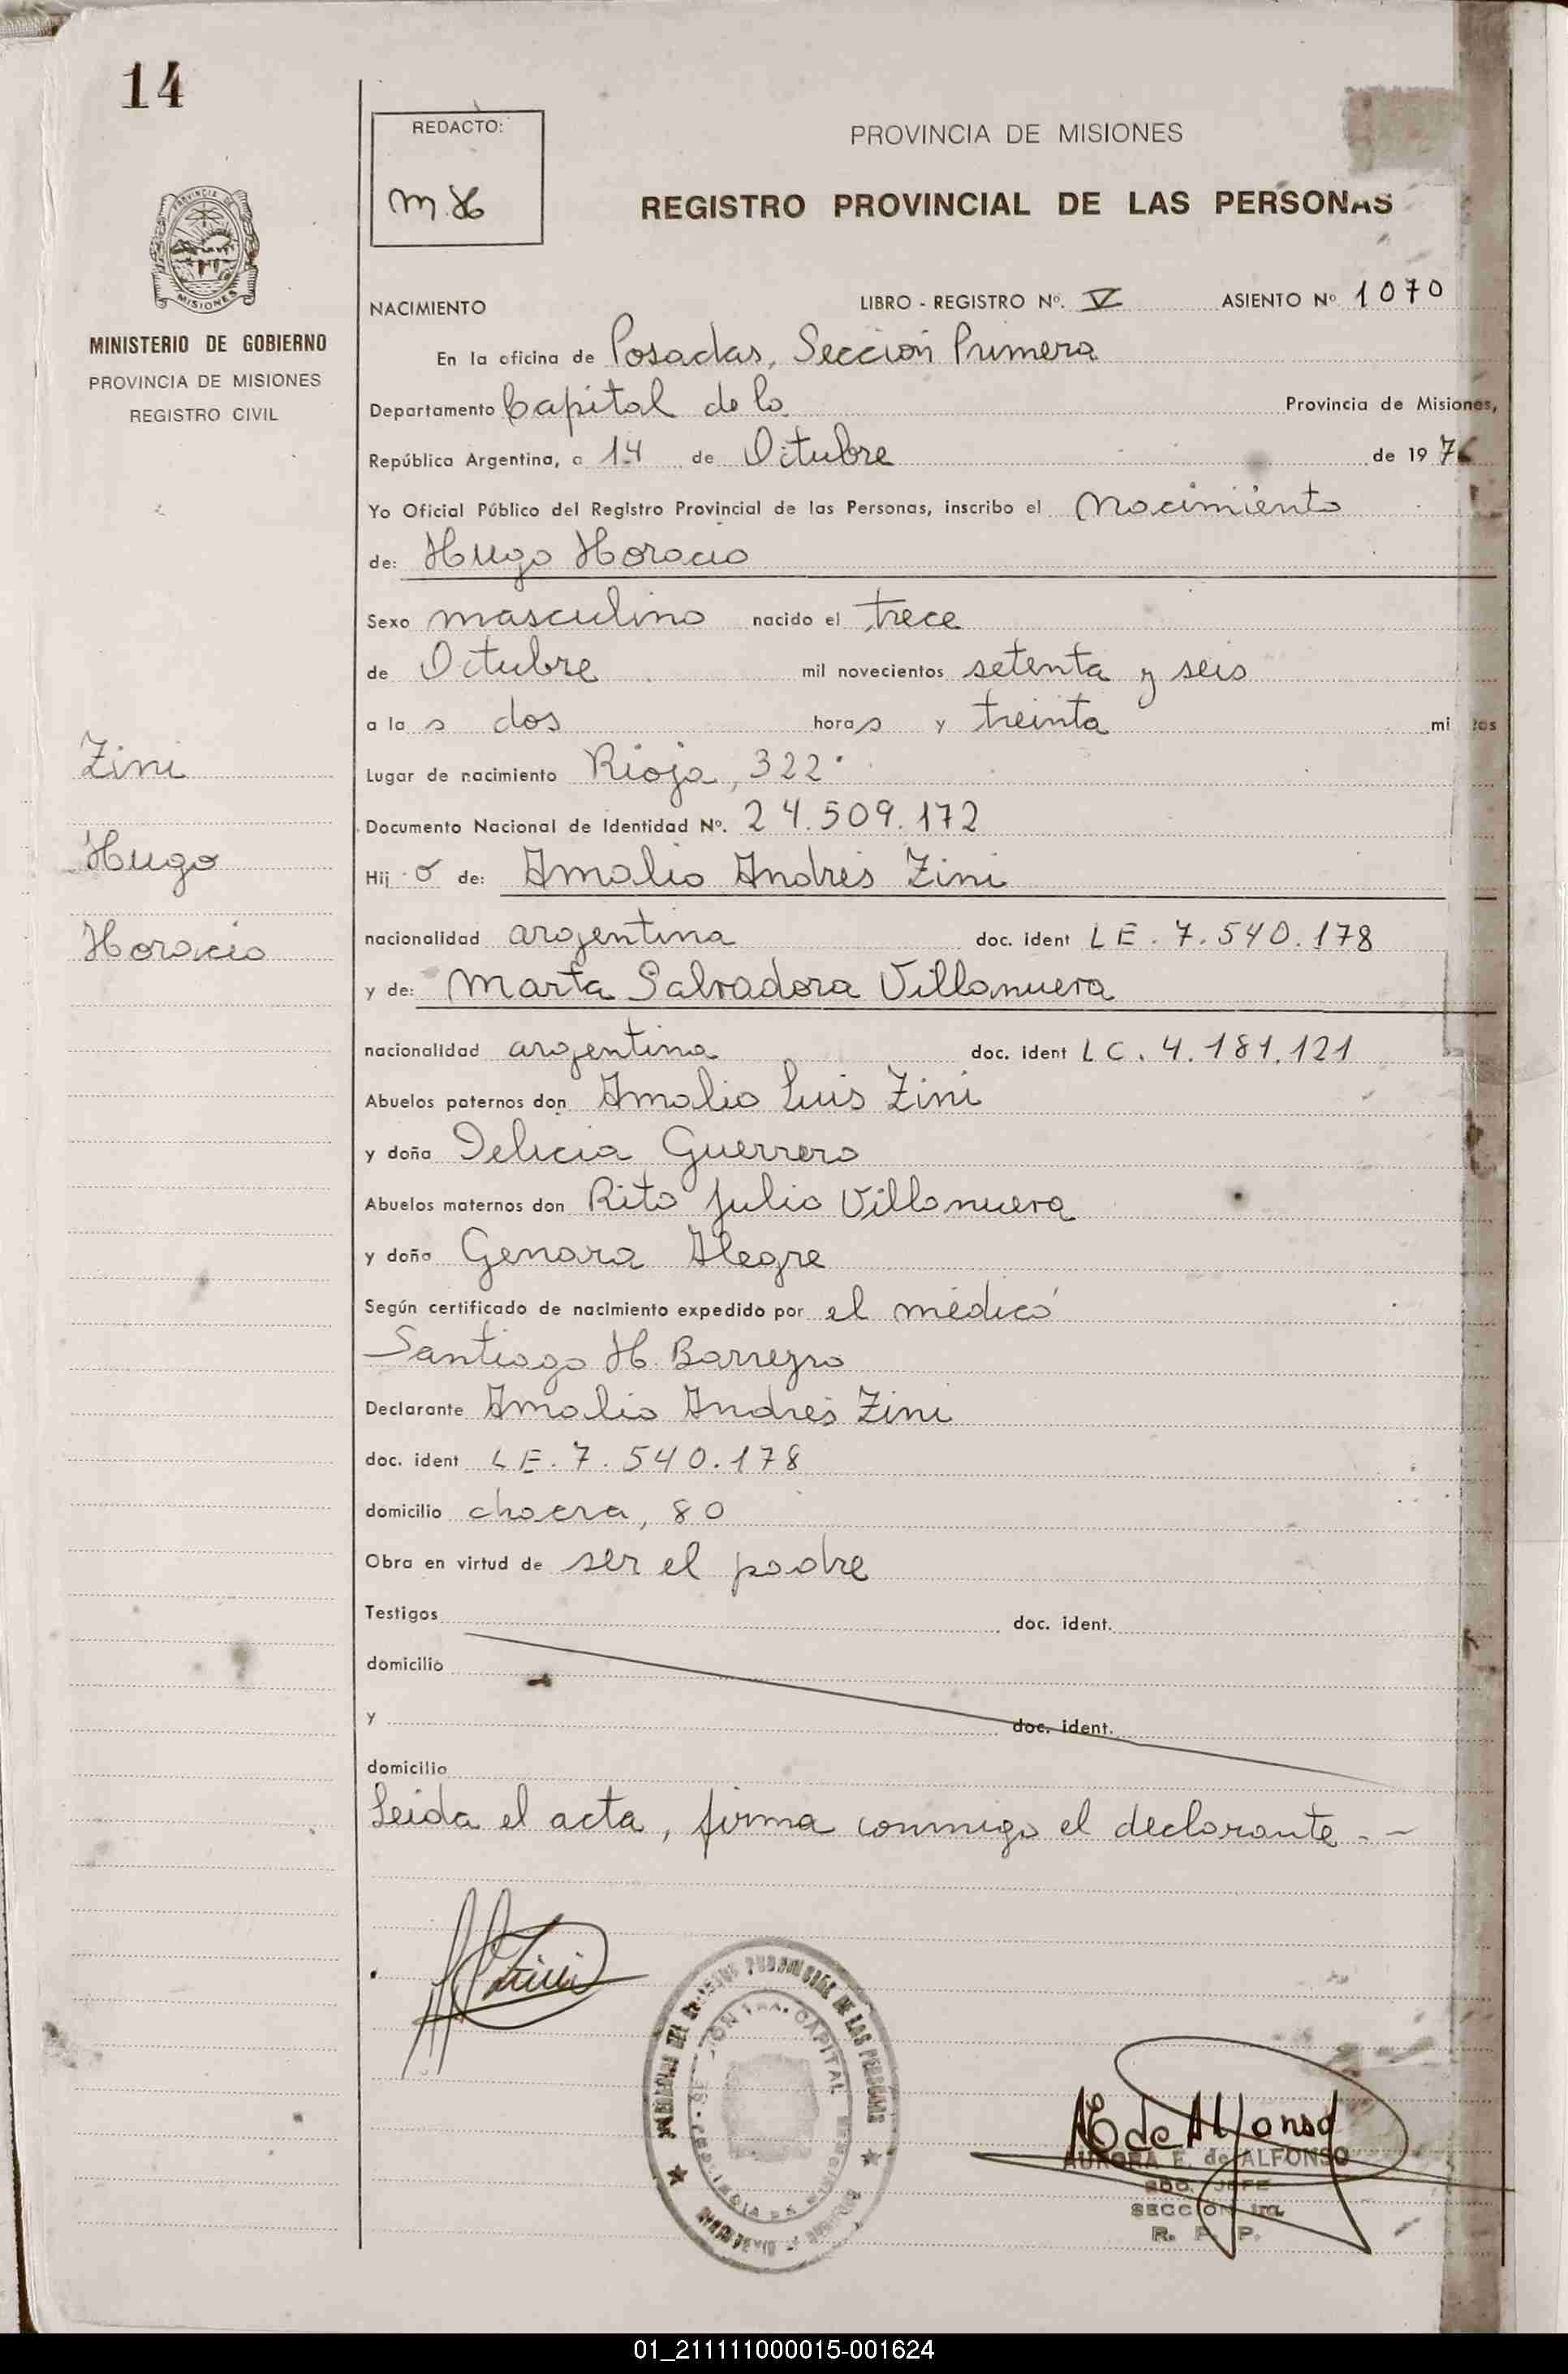 14
REDACTO:
M.H
PROVINCIA DE MISIONES
REGISTRO PROVINCIAL DE LAS PERSONAS
PROVINCIA DE
MISIONES
MINISTERIO DE GOBIERNO
PROVINCIA DE MISIONES
REGISTRO CIVIL
NACIMIENTO LIBRO - REGISTRO Nº. V ASIENTO Nº 1070
En la oficina de Posadas, Sección Primera
Departamento Capital de la Provincia de Misiones,
República Argentina, a 14 de Octubre de 1976
Yo Oficial Público del Registro Provincial de las Personas, inscribo el nacimiento
de: Hugo Horacio
Sexo masculino nacido el trece
de Octubre mil novecientos setenta y seis
a la s dos horas y treinta mi tos
Zini
Lugar de nacimiento Rioja, 322
Documento Nacional de Identidad Nº. 24.509.172
Hugo
Hij o de: Amalio Andrés Zini
Horacio
nacionalidad argentina doc. ident LE. 7.540.178
y de: Marta Salvadora Villanueva
nacionalidad argentina doc. ident LC. 4.181.121
Abuelos paternos don Amalio Luis Zini
y doña Delicia Guerrero
Abuelos maternos don Rito Julio Villanueva
y doña Genara Alegre
Según certificado de nacimiento expedido por el médico
Santiago H. Barreyro
Declarante Amalio Andrés Zini
doc. ident LE. 7.540.178
domicilio chacra, 80
Obra en virtud de ser el padre
Testigos doc. ident.
domicilio
y doc. ident.
domicilio
Leida el acta, firma conmigo el declarante.-
Zini
PROVINCIAL DE LAS PERSONAS
CAPITAL
AE de Alfonso
AURORA E. de ALFONSO
JEFE
SECCION 1ra.
R. P. P.
01_211111000015-001624